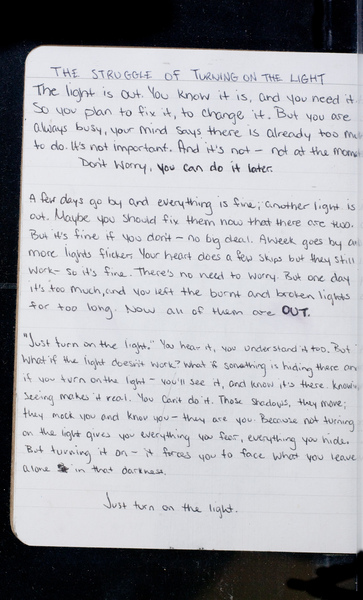 THE STRUGGLE OF TURNING ON THE LIGHT
The light is out. You know it is, and you need it.
So you plan to fix it, to change it. But you are
always busy, your mind says there is already too
to do. It's not important. And it's not – not at the
Don't worry, you can do it later.
A few days go by and everything is fine; another light is
out. Maybe you should fix them now that there are two.
But it's fine if you don't – no big deal. A week goes by
more lights flicker. Your heart does a few skips but they still
work – so it's fine. There's no need to worry. But one day
it's too much, and you left the burnt and broken lights
for too long. Now all of them are OUT.
"Just turn on the light," You hear it, you understand it too. But
what if the light doesn't work? What if something is hiding there
if you turn on the light – you'll see it, and know it's there.
seeing makes it real. You can't do it. Those shadows, they move;
they mock you and know you – they are you. Because not turning
on the light gives you everything you fear, everything you hide.
But turning it on – it forces you to face what you leave
alone in that darkness.
Just turn on the light.